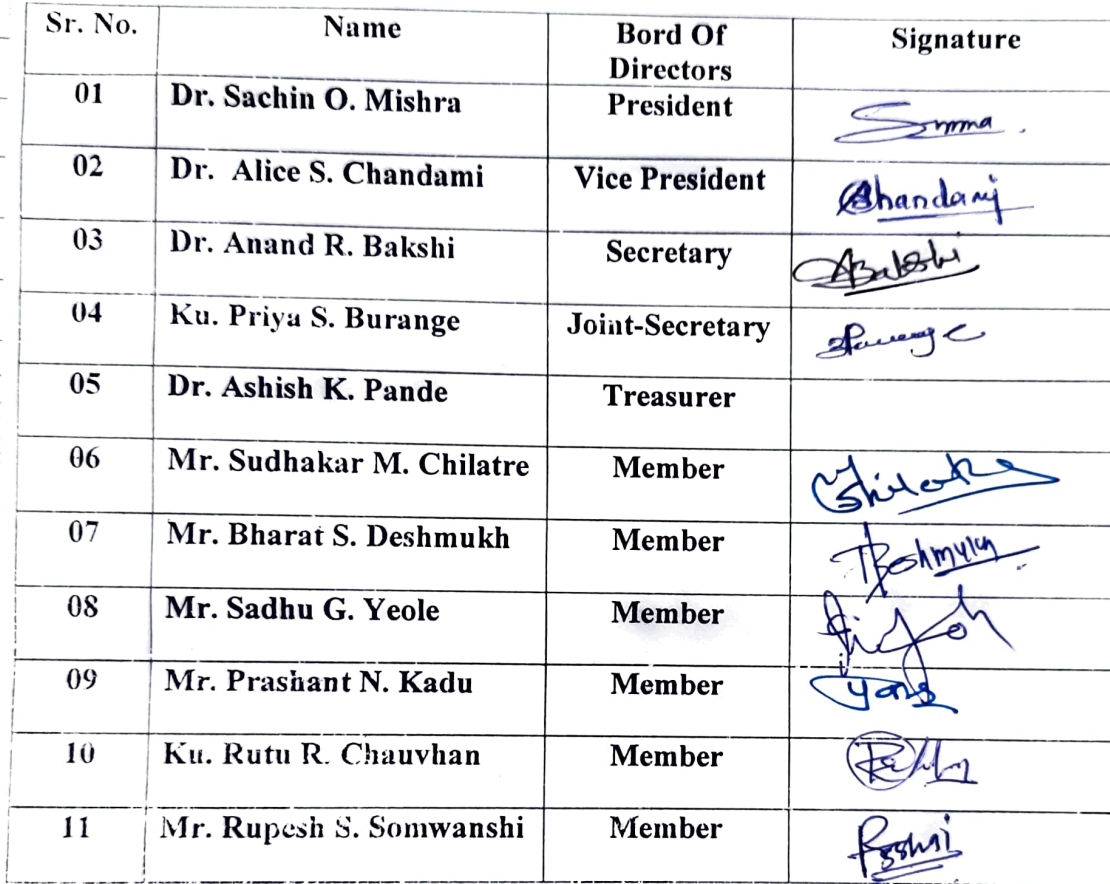 Sr. No. Name Bord Of Directors Signature
01 Dr. Sachin O. Mishra President
02 Dr. Alice S. Chandami Vice President Chandami
03 Dr. Anand R. Bakshi Secretary ABakshi
04 Ku. Priya S. Burange Joint-Secretary
05 Dr. Ashish K. Pande Treasurer
06 Mr. Sudhakar M. Chilatre Member
07 Mr. Bharat S. Deshmukh Member
08 Mr. Sadhu G. Yeole Member
09 Mr. Prashant N. Kadu Member
10 Ku. Rutu R. Chauvhan Member
11 Mr. Rupesh S. Somwanshi Member